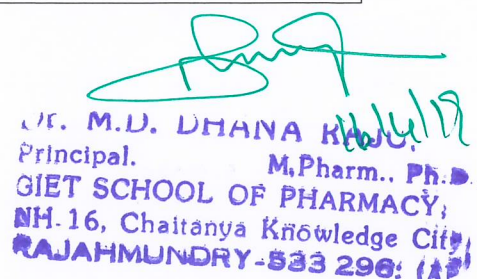 Dr. M.D. DHANA RAJU,
Principal. M.Pharm., Ph.D.
GIET SCHOOL OF PHARMACY,
NH-16, Chaitanya Knowledge City,
RAJAHMUNDRY-533 296.